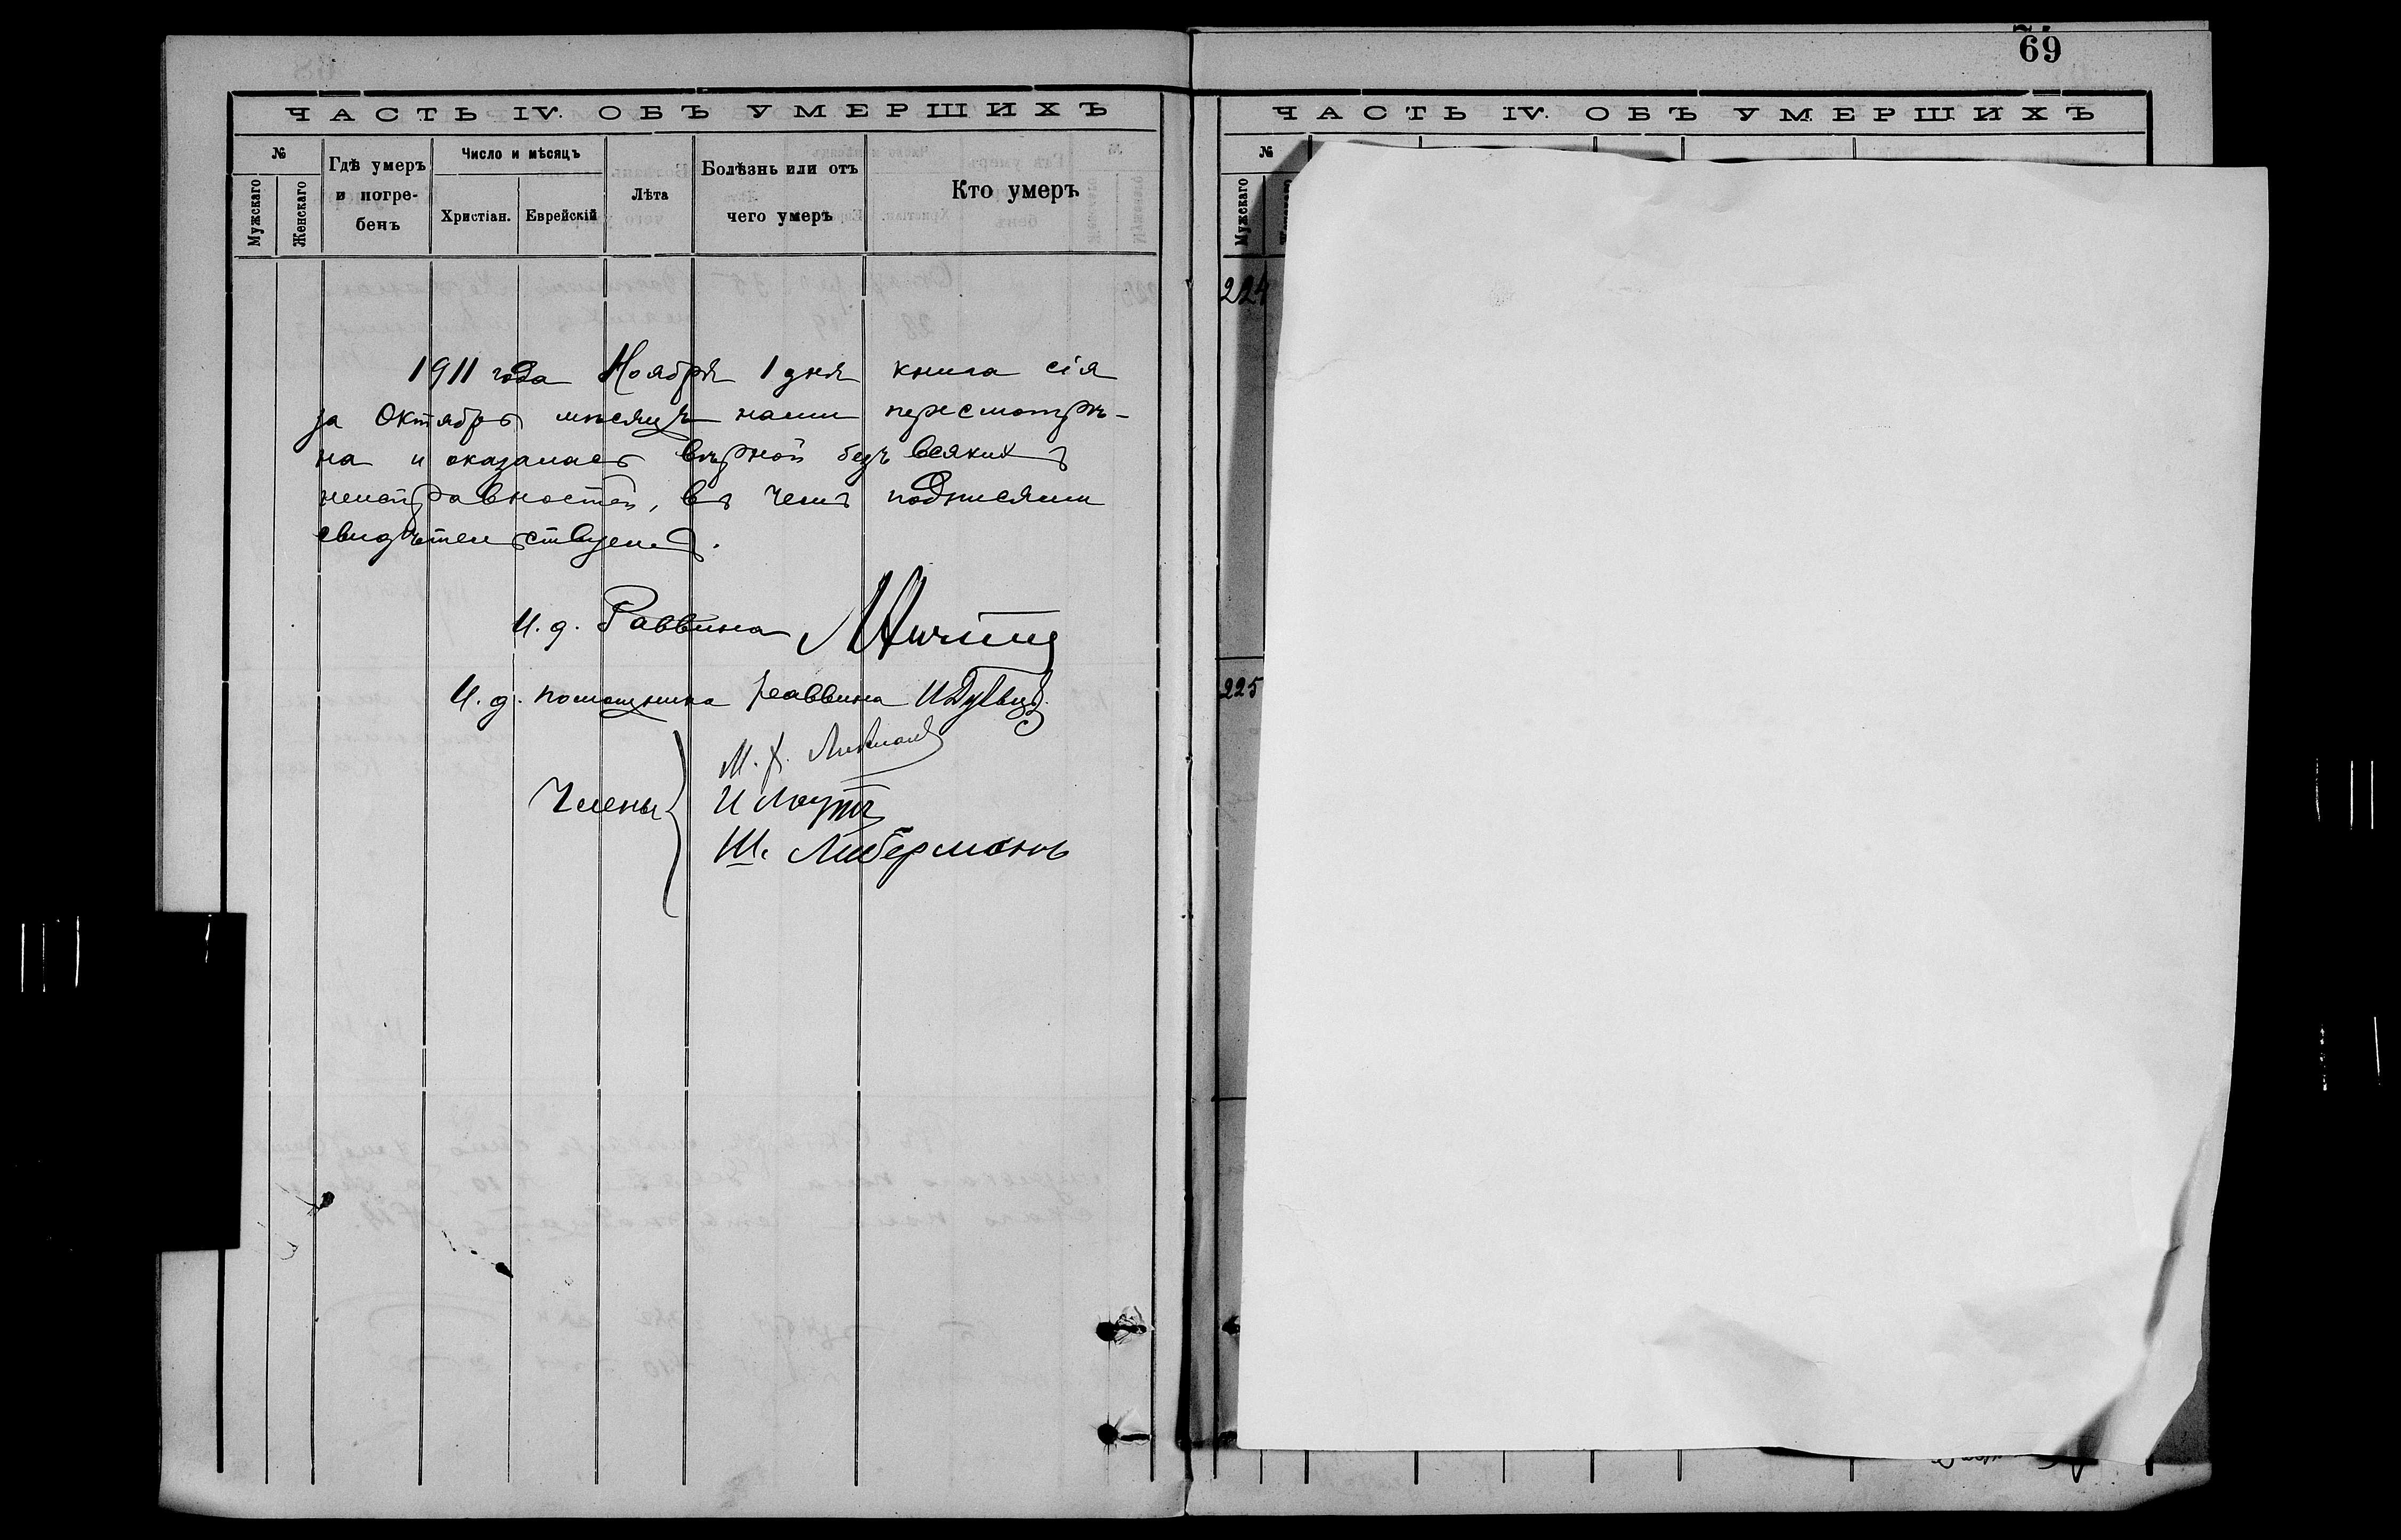 69
ЧАСТЬ IV. ОБЪ УМЕРШИХЪ
№
Мужскаго
Женскаго
Гдѣ умеръ
и погре-
бенъ
Число и мѣсяцъ
Христіан.
Еврейскій
Лѣта
Болѣзнь или отъ
чего умеръ
Кто умеръ
1911 года Ноября 1 дня книга сія
за Октябрь мѣсяцъ нами пересмотрѣ-
на и оказалась вѣрной безъ всякихъ
неисправностей, въ чемъ подписями
свидѣтельствуемъ.
И. д. Раввина
И. д. помощника раввина
Члены
М.
И
Ш. Либерманъ
ЧАСТЬ IV. ОБЪ УМЕРШИХЪ
№
Мужскаго
224
225